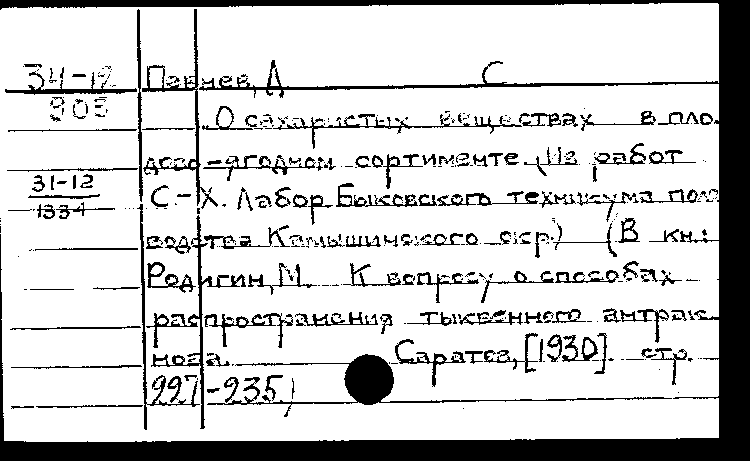 34-12 Павнев, Д С
803
О сахаристых веществах в пло-
дово-ягодном сортименте. (Из работ
31-12
1334 С.-Х. Лабор. Быковского техникума поло
водства Камышинского окр.) (В кн.:
Родигин, М. К вопросу о способах
распространения тыквенного антрак-
ноза. Саратов, [1930]. стр.
227-235.)